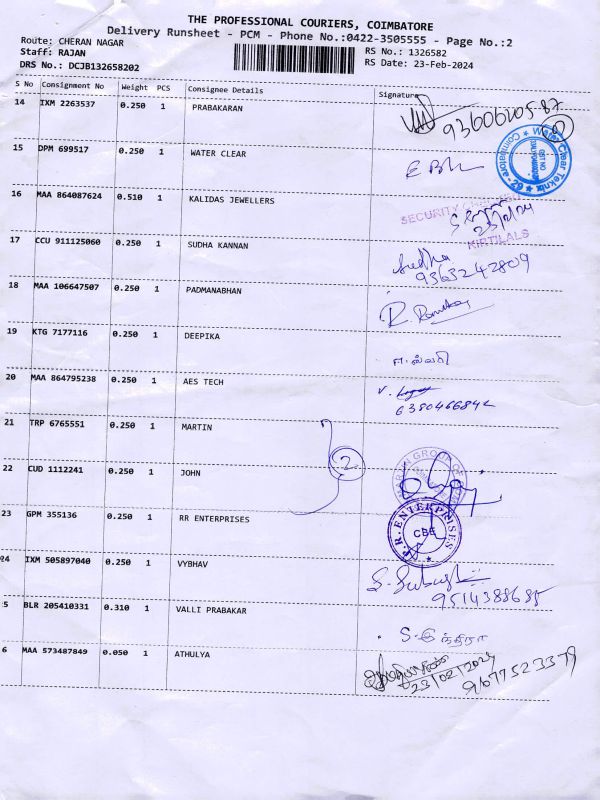 THE PROFESSIONAL COURIERS, COIMBATORE
Delivery Runsheet - PCM - Phone No.:0422-3505555 - Page No.:2
Route: CHERAN NAGAR
Staff: RAJAN
DRS No.: DCJB132658202
RS No.: 1326582
RS Date: 23-Feb-2024
S No Consignment No Weight PCS Consignee Details Signature
14 IXM 2263537 0.250 1 PRABAKARAN
15 DPM 699517 0.250 1 WATER CLEAR
16 MAA 864087624 0.510 1 KALIDAS JEWELLERS
SECURITY
23/2/24
KIRTILALS
17 CCU 911125060 0.250 1 SUDHA KANNAN
Sudha
9363242809
18 MAA 106647507 0.250 1 PADMANABHAN
19 KTG 7177116 0.250 1 DEEPIKA
20 MAA 864795238 0.250 1 AES TECH
21 TRP 6765551 0.250 1 MARTIN
2
22 CUD 1112241 0.250 1 JOHN
23 GPM 355136 0.250 1 RR ENTERPRISES
R.R. ENTERPRISES
CBE
24 IXM 505897040 0.250 1 VYBHAV
5 BLR 205410331 0.310 1 VALLI PRABAKAR
S. இந்திரா
6 MAA 573487849 0.050 1 ATHULYA
23/02/2024